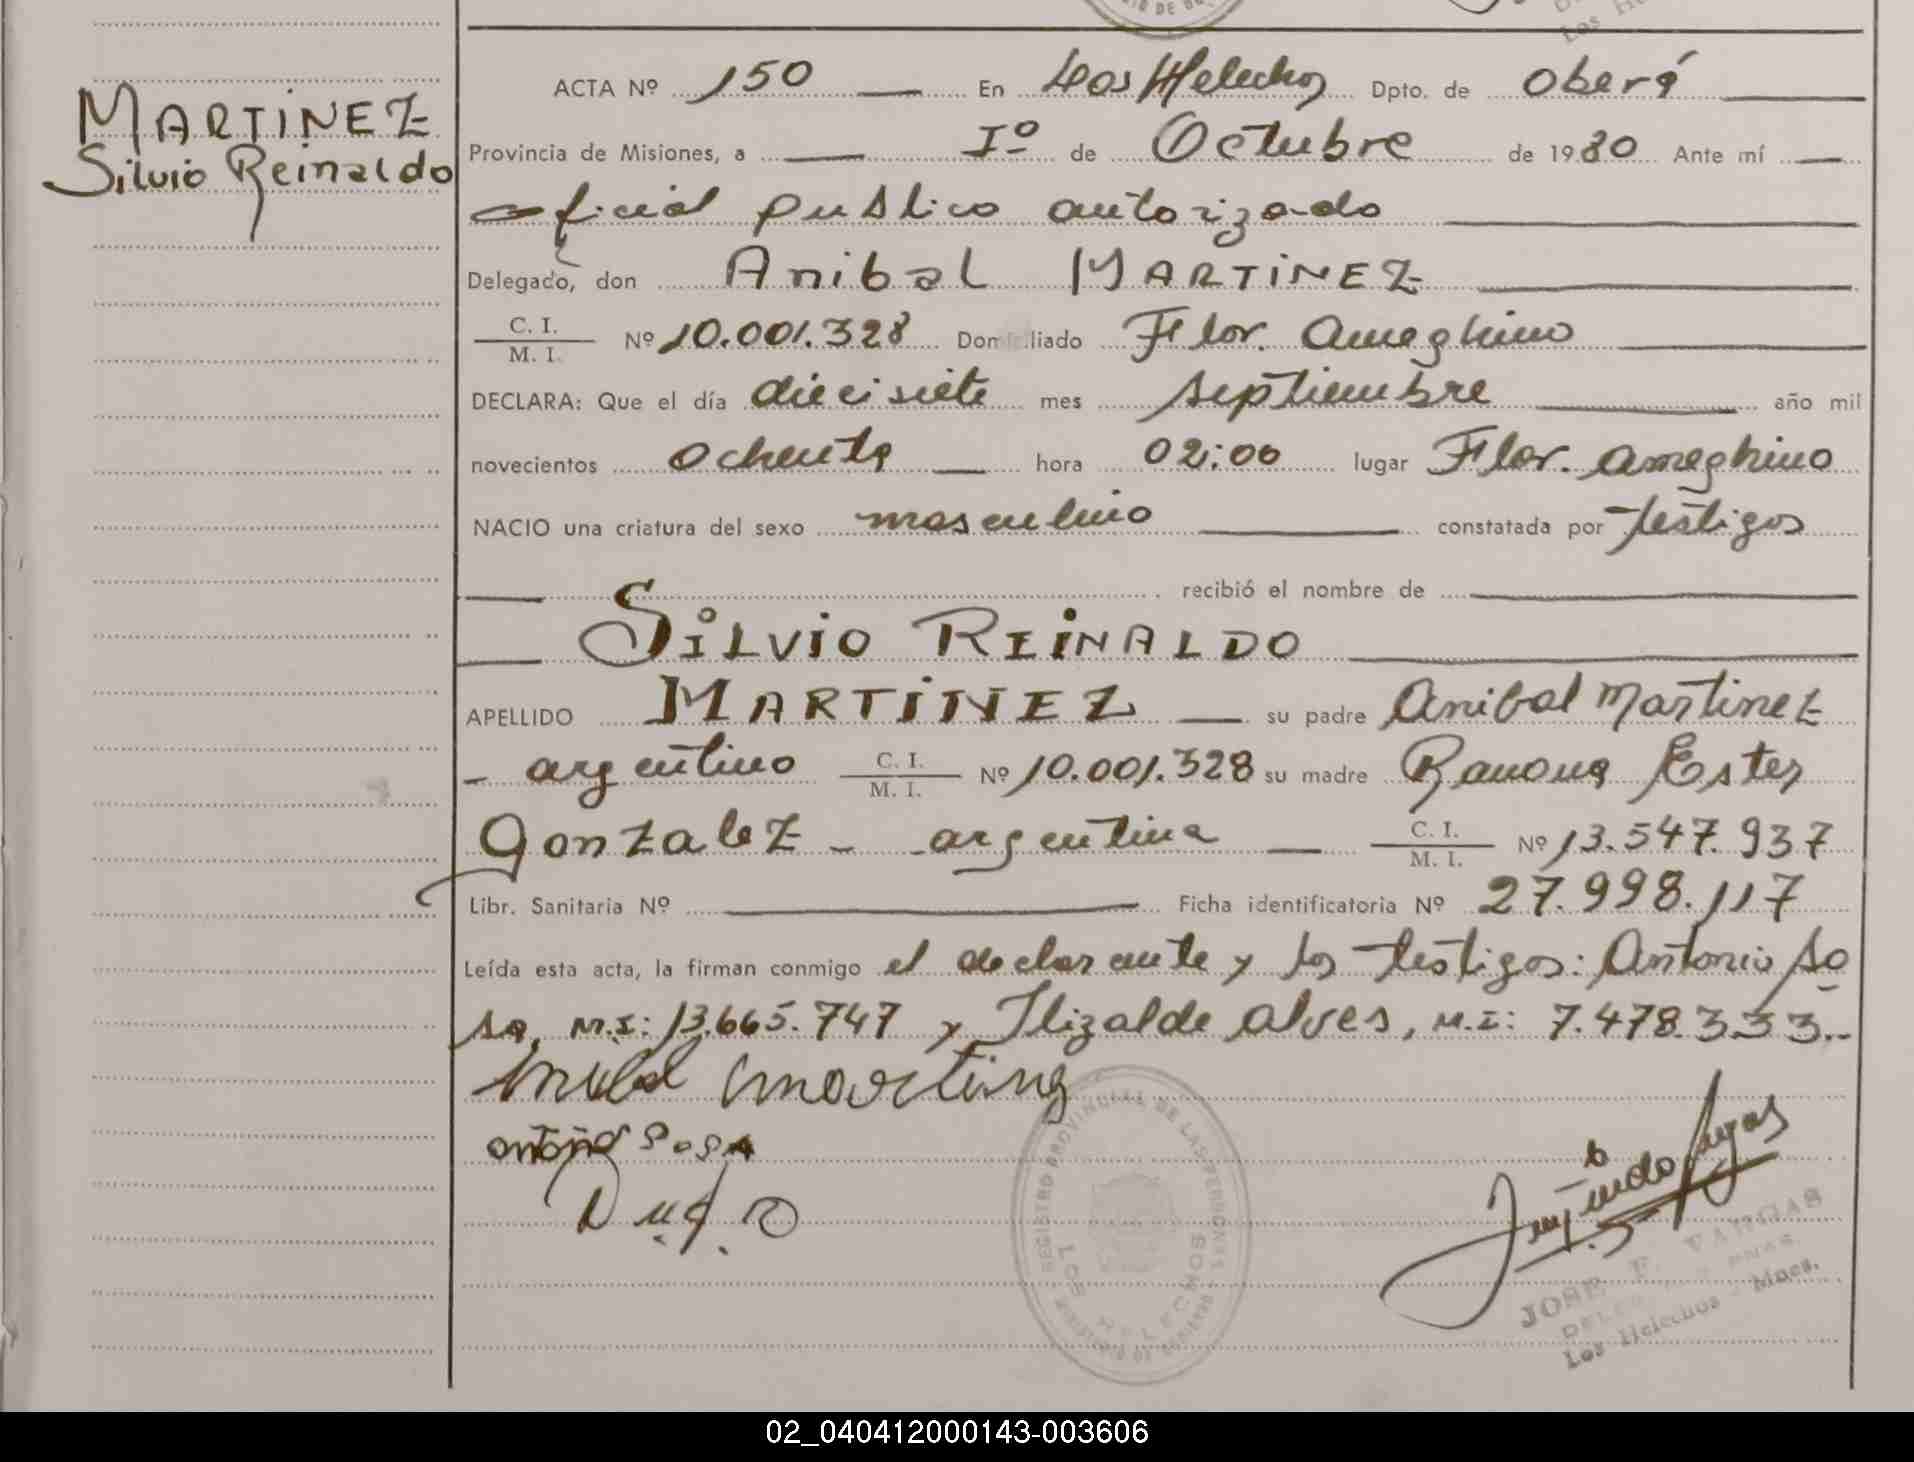 MARTINEZ
Silvio Reinaldo
ACTA Nº 150 En Los Helechos Dpto. de Oberá
Provincia de Misiones, a 1º de Octubre de 1980 Ante mí
oficial publico autorizado
Delegado, don Anibal MARTINEZ
C. I.
M. I. Nº 10.001.328 Domiciliado Flor. Ameghino
DECLARA: Que el día diecisiete mes septiembre año mil
novecientos ochenta hora 02:00 lugar Flor. Ameghino
NACIO una criatura del sexo masculino constatada por testigos
recibió el nombre de
SILVIO REINALDO
APELLIDO MARTINEZ su padre Anibal Martinez
argentino C. I. M. I. Nº 10.001.328 su madre Ramona Ester
Gonzalez - argentina C. I. M. I. Nº 13.547.937
Libr. Sanitaria Nº Ficha identificatoria Nº 27.998.117
Leída esta acta, la firman conmigo el declarante y los testigos: Antonio So
sa, M.I: 13.665.747 y Ilizalde Alves, M.I: 7.478.333.-
antonio Sosa
REGISTRO PROVINCIAL DE LAS PERSONAS
LOS HELECHOS
MINISTERIO DE GOBIERNO
JOSE F. VARGAS
Los Helechos - Mnes.
02_040412000143-003606